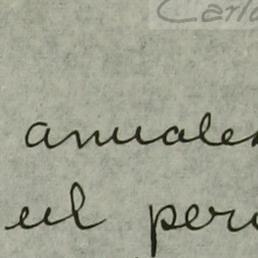 Carlo
anuales
el per